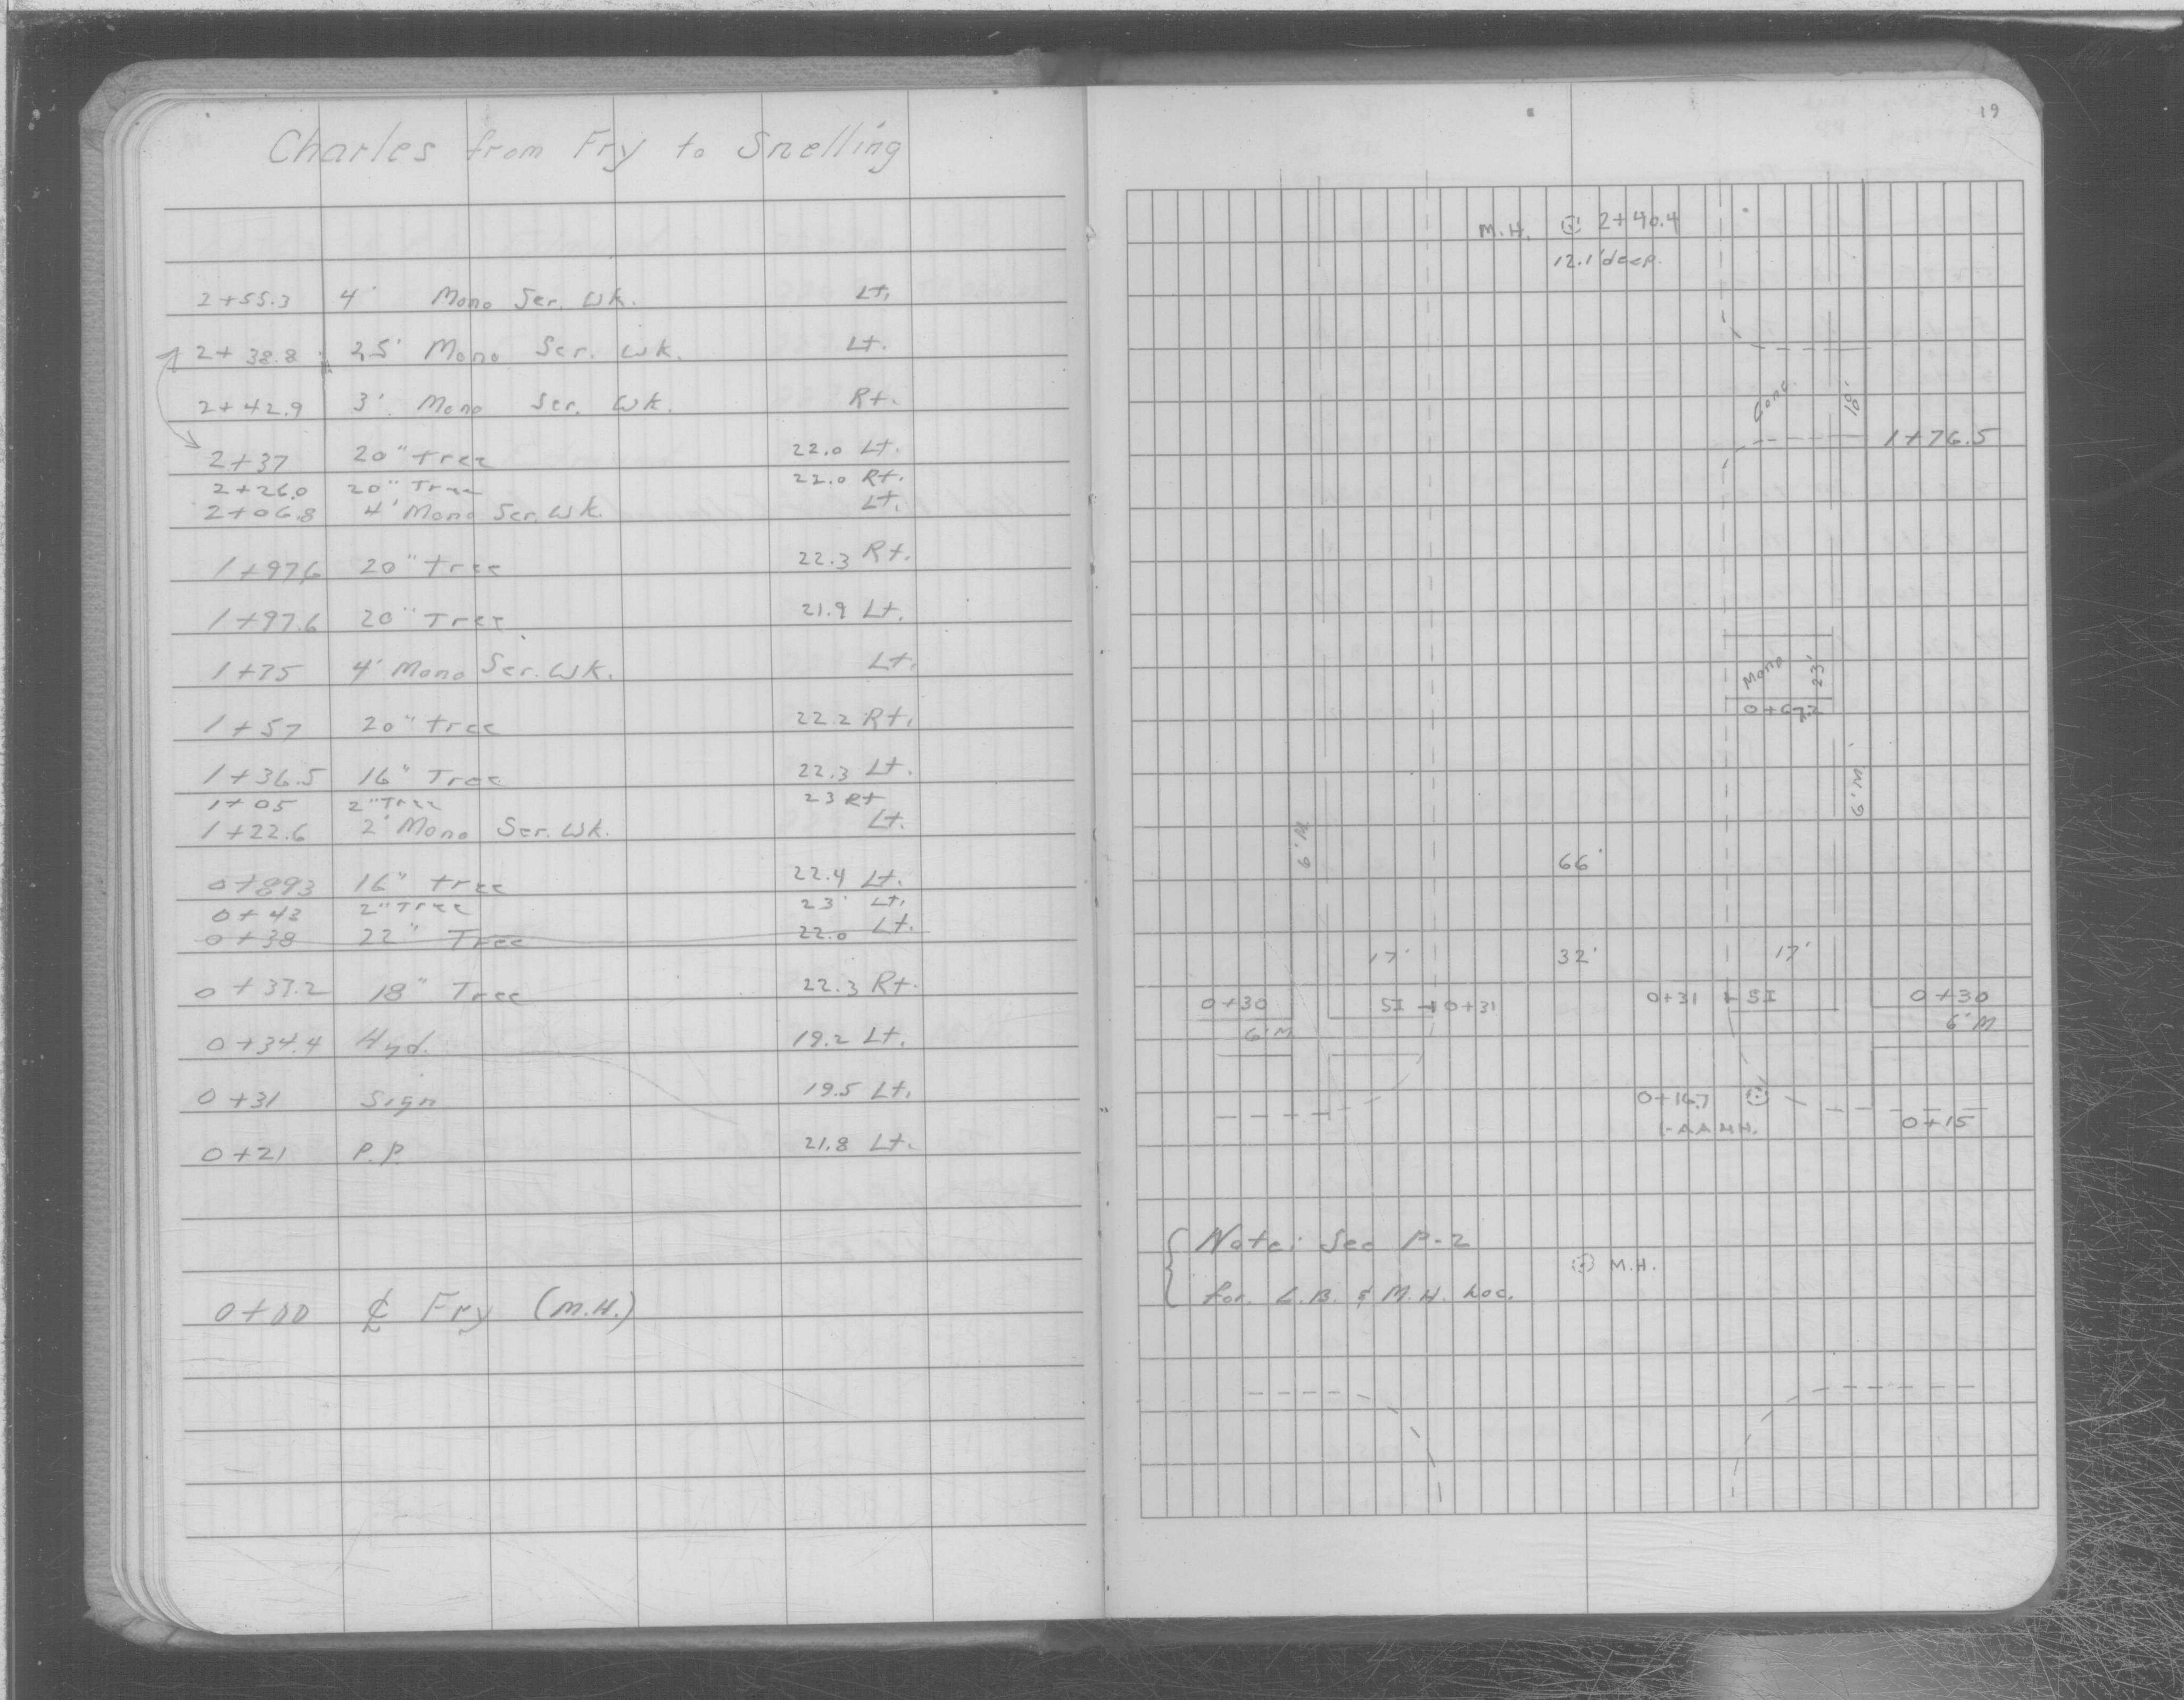 Charles from Fry to Snelling
2+55.3 4' Mono Ser. Wk. Lt.
2+38.8 2.5' Mono Ser. Wk. Lt.
2+42.9 3' Mono Ser. Wk. Rt.
2+37 20" tree 22.0 Lt.
2+26.0 20" Tree 22.0 Rt.
2+06.8 4' Mono Ser. Wk. Lt.
1+97.6 20" tree 22.3 Rt.
1+97.6 20" Tree 21.9 Lt.
1+75 4' Mono Ser. Wk. Lt.
1+57 20" tree 22.2 Rt.
1+36.5 16" Tree 22.3 Lt.
1+05 2" Tree 23 Rt
1+22.6 2' Mono Ser. Wk. Lt.
0+893 16" tree 22.4 Lt.
0+43 2" Tree 23' Lt.
0+38 22" Tree 22.0 Lt.
0+37.2 18" Tree 22.3 Rt.
0+34.4 Hyd. 19.2 Lt.
0+31 Sign 19.5 Lt.
0+21 P.P. 21.8 Lt.
0+00 ℄ Fry (M.H.)
19
M.H. 2+40.4
12.1' deep.
Conc. 18'
1+76.5
Mono 23'
0+67.2
6' M
6' M
66'
17' 32' 17'
0+30 SI 0+31 0+31 SI 0+30
6' M 6' M
0+16.7
0+15
Note: See P-2
M.H.
for C.B. & M.H. Loc.